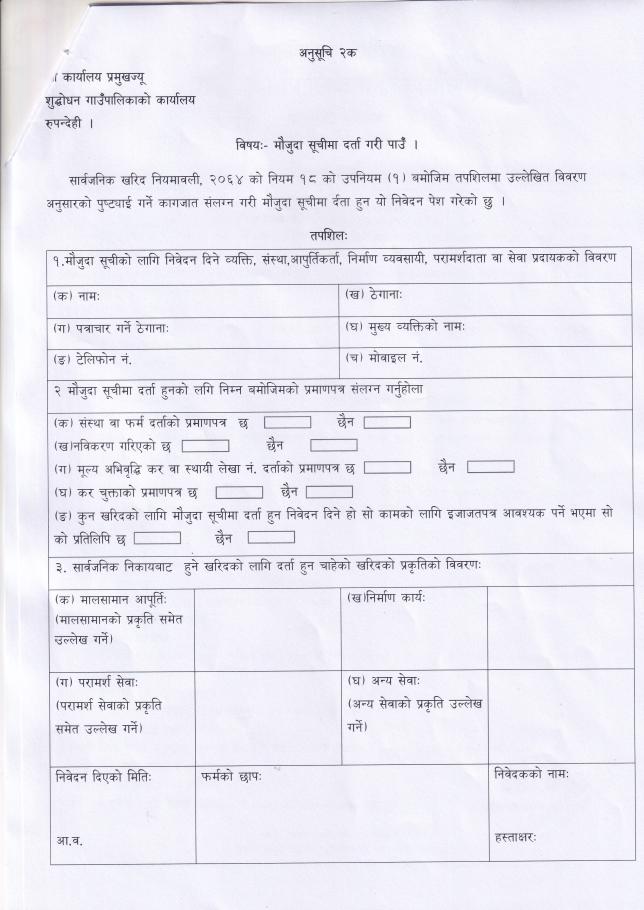 अनुसूचि २क
कार्यालय प्रमुखज्यू
शुद्धोधन गाउँपालिकाको कार्यालय
रुपन्देही ।
विषयः- मौजुदा सूचीमा दर्ता गरी पाउँ ।
सार्वजनिक खरिद नियमावली, २०६४ को नियम १८ को उपनियम (१) बमोजिम तपशिलमा उल्लेखित विवरण
अनुसारको पुष्ट्याई गर्ने कागजात संलग्न गरी मौजुदा सूचीमा र्दता हुन यो निवेदन पेश गरेको छु ।
तपशिलः
१.मौजुदा सूचीको लागि निवेदन दिने व्यक्ति, संस्था,आपुर्तिकर्ता, निर्माण व्यवसायी, परामर्शदाता वा सेवा प्रदायकको विवरण
(क) नामः
(ख) ठेगानाः
(ग) पत्राचार गर्ने ठेगानाः
(घ) मुख्य व्यक्तिको नामः
(ङ) टेलिफोन नं.
(च) मोबाइल नं.
२ मौजुदा सूचीमा दर्ता हुनको लगि निम्न बमोजिमको प्रमाणपत्र संलग्न गर्नुहोला
(क) संस्था वा फर्म दर्ताको प्रमाणपत्र छ छैन
(ख)नविकरण गरिएको छ छैन
(ग) मूल्य अभिवृद्धि कर वा स्थायी लेखा नं. दर्ताको प्रमाणपत्र छ छैन
(घ) कर चुक्ताको प्रमाणपत्र छ छैन
(ङ) कुन खरिदको लागि मौजुदा सूचीमा दर्ता हुन निवेदन दिने हो सो कामको लागि इजाजतपत्र आवश्यक पर्ने भएमा सो
को प्रतिलिपि छ छैन
३. सार्वजनिक निकायबाट हुने खरिदको लागि दर्ता हुन चाहेको खरिदको प्रकृतिको विवरणः
(क) मालसामान आपूर्तिः
(मालसामानको प्रकृति समेत
उल्लेख गर्ने)
(ख)निर्माण कार्यः
(ग) परामर्श सेवाः
(परामर्श सेवाको प्रकृति
समेत उल्लेख गर्ने)
(घ) अन्य सेवाः
(अन्य सेवाको प्रकृति उल्लेख
गर्ने)
निवेदन दिएको मितिः
आ.व.
फर्मको छापः
निवेदकको नामः
हस्ताक्षरः